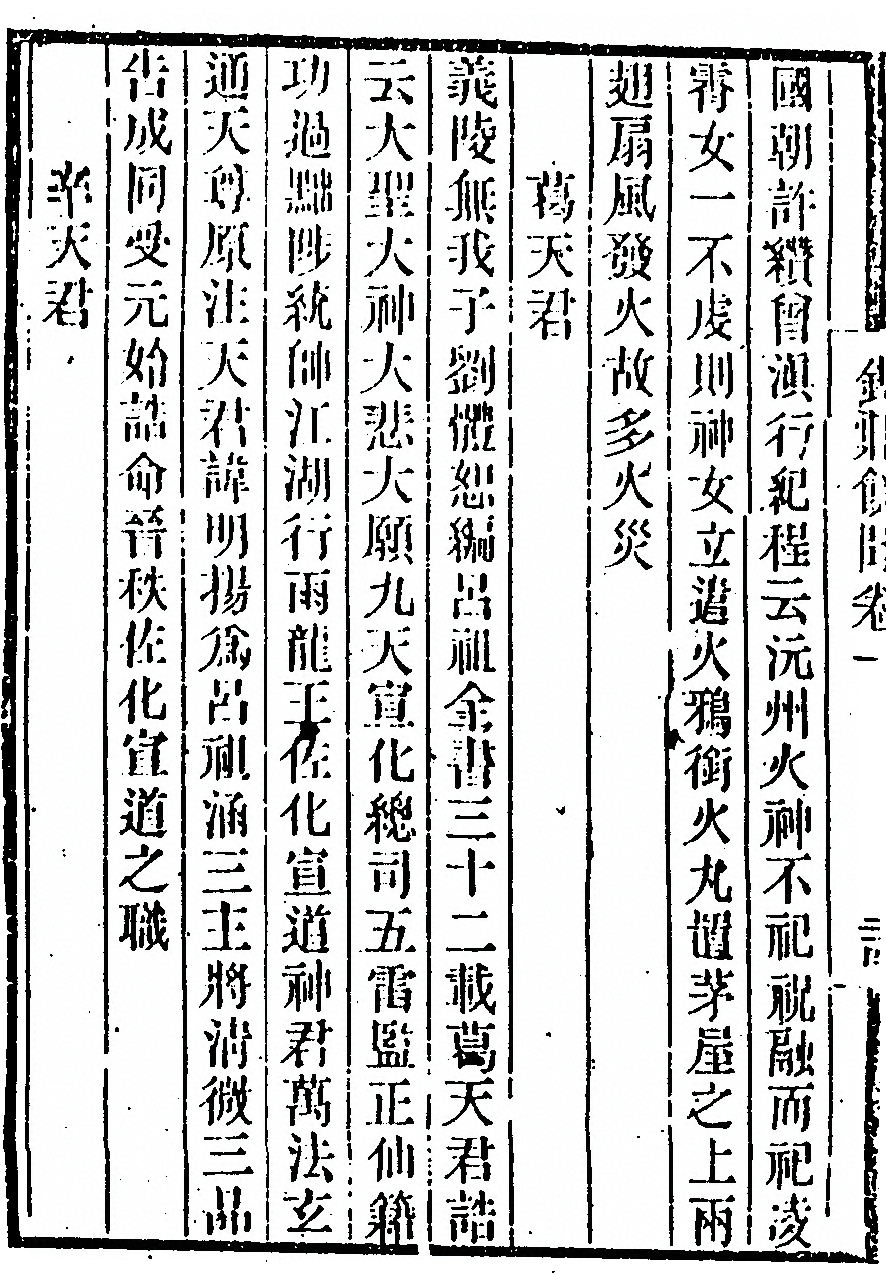 國朝許纘曾滇行紀程云沅州火神不祀祝融而祀凌
霄女一不虔則神女立遣火鴉銜火丸置茅屋之上兩
翅扇風發火故多火災
葛天君
義陵無我子劉體恕編呂祖全書三十二載葛天君誥
云大聖大神大悲大願九天宣化總司五雷監正仙籍
功過黜陟統帥江湖行雨龍王佐化宣道神君萬法玄
通天尊原注天君諱明揚為呂祖涵三主將清微三品
告成同受元始誥命晉秩佐化宣道之職
辛天君
卷一